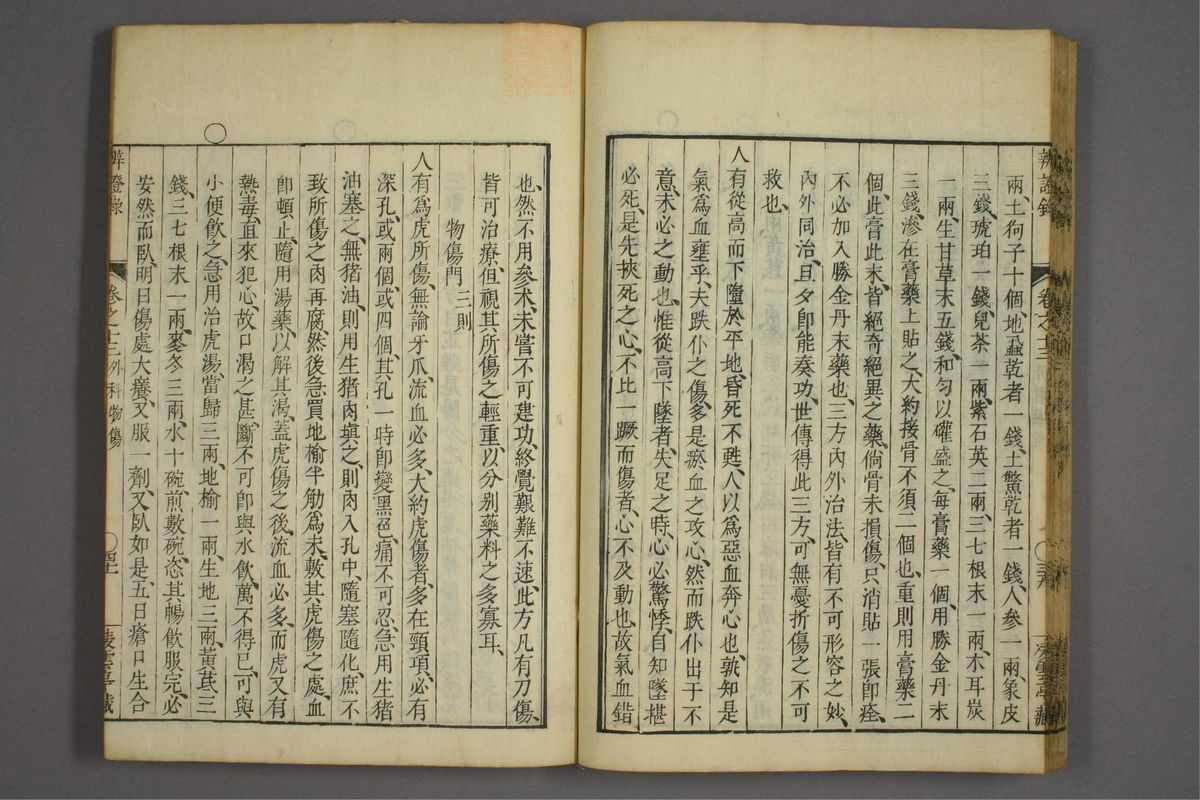 兩、土狗子十個、地蝨乾者一錢、土鱉乾者一錢、人参一兩、象皮
三錢、琥珀一錢、兒茶一兩、紫石英二兩、三七根末一兩、木耳炭
一兩、生甘草末五錢、和勻以確盛之、每膏藥一個、用勝金丹末
三錢、滲在膏藥上貼之、大約接骨不須二個也、重則用膏藥二
個、此膏此末、皆絕奇絕異之藥、倘骨未損傷、只消貼一張卽痊、
不必加入勝金丹末藥也、三方內外治法、皆有不可形容之妙、
內外同治、旦夕卽能奏功、世傳得此三方、可無憂折傷之不可
救也、
人有從高而下墮於平地、昏死不甦、人以爲惡血奔心也、孰知是
氣爲血壅乎、夫跌仆之傷、多是瘀血之攻心、然而跌仆出于不
意、未必心之動也、惟從高下墜者、失足之時、心必驚悸、自知墜堪
必死、是先挾死之心、不比一蹶而傷者、心不及動也、故氣血錯
也、然不用參朮、未嘗不可建功、終覺艱難不速、此方凡有刀傷、
皆可治療、但視其所傷之輕重、以分別藥料之多寡耳、
物傷門 三則
人有爲虎所傷、無論牙爪、流血必多、大約虎傷者、多在頸項、必有
深孔、或兩個、或四個、其孔一時卽變黑色、痛不可忍、急用生猪
油塞之、無猪油、則用生猪肉填之、則肉入孔中、隨塞隨化、庶不
致所傷之肉再腐、然後急買地榆半觔爲末、敷其虎傷之處、血
卽頓止、隨用湯藥、以解其渴、蓋虎傷之後、流血必多、而虎又有
熱毒、直來犯心、故口渴之甚、斷不可卽與水飲、萬不得已、可與
小便飲之、急用治虎湯、當歸三兩、地榆一兩、生地三兩、黃芪三
錢、三七根末一兩、麥冬三兩、水十碗、煎數碗、恣其暢飲、服完必
安然而臥、明日傷處大癢、又服一劑、又臥、如是五日、瘡口生合
卷之十三 外科物傷